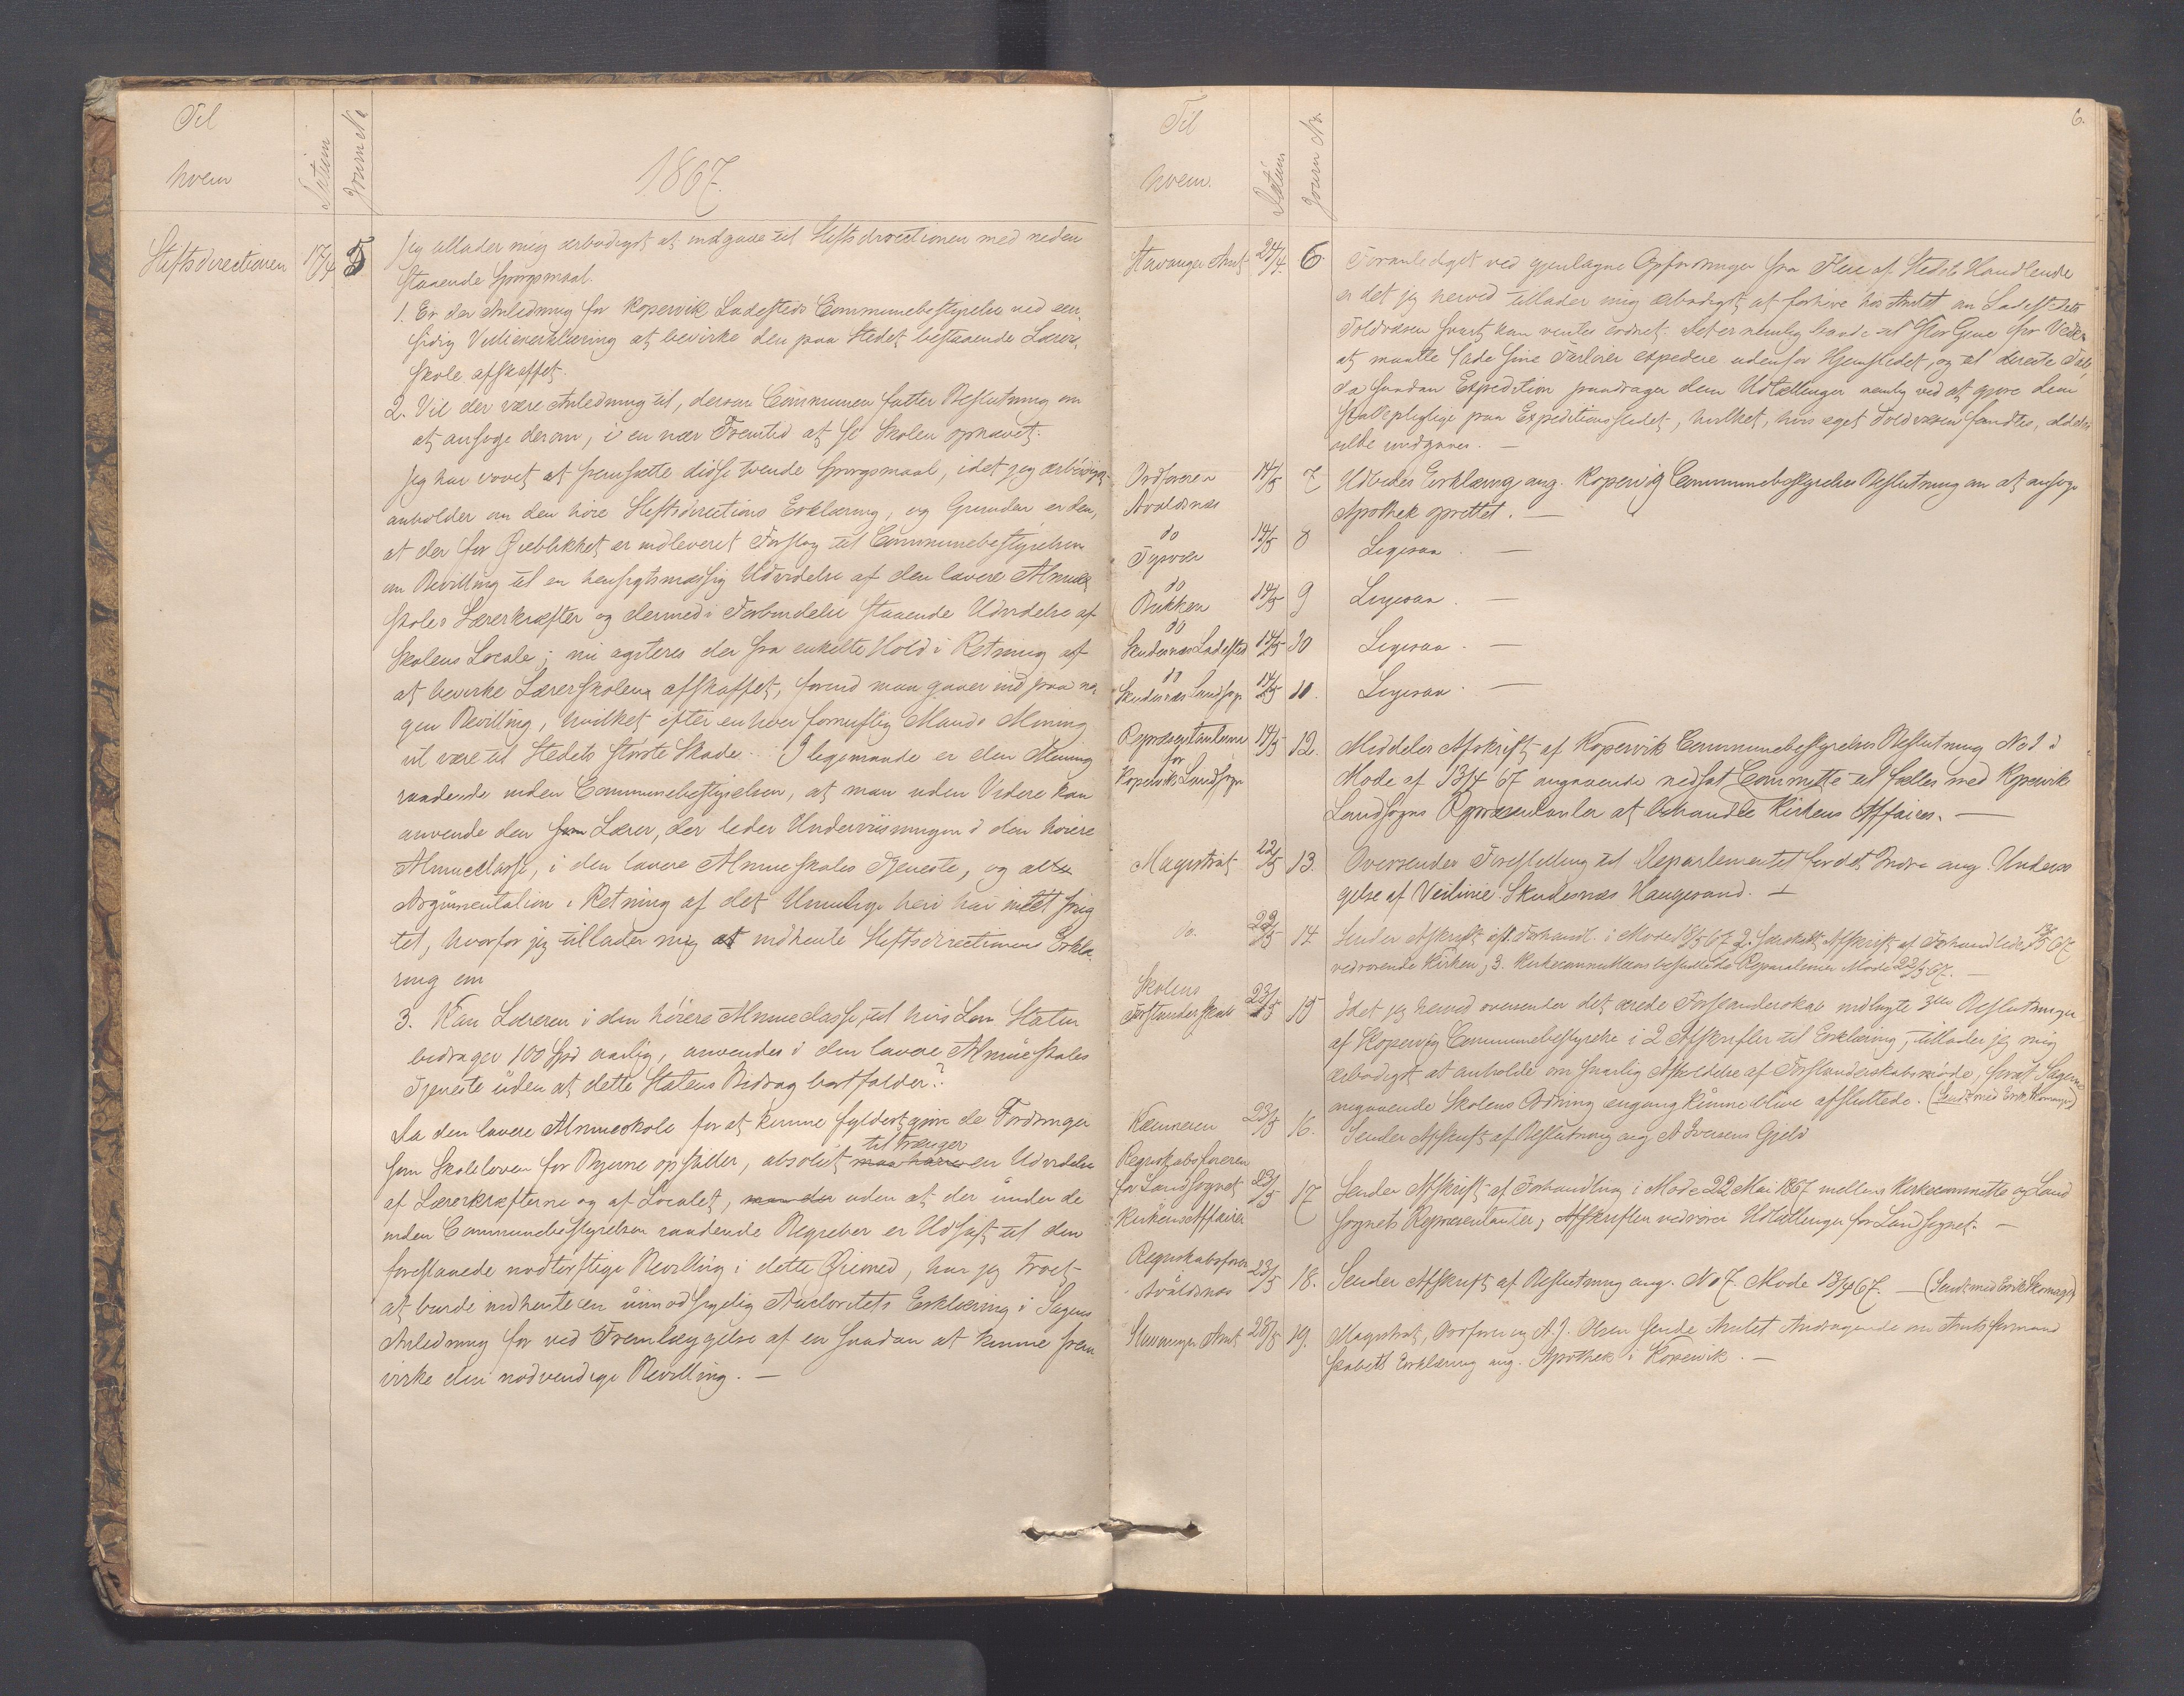 Til
hvem
Datum
Journ No
1867.
Stiftsdirectionen 17/4 5 Jeg tillader mig ærbødigst at indgaae til Stiftsdirectionen med neden
staaende Spørgsmaal.
1. Er der Anledning for Kopervik Ladesteds Communebestyrelse ved een
sidig Villieserklæring at bevirke den paa Stedet bestaaende Lærer
skole afskaffet.
2. Vil der være Anledning til, dersom Communen fatter Beslutning om
at ansøge derom, i en nær Fremtid at se Skolen ophævet.
Jeg har vovet at fremsætte disse tvende Spørgsmaal, idet jeg ærbødigst
anholder om den høie Stiftsdirections Erklæring, og Grunden er den,
at der for Øieblikket er indleveret Forslag til Communebestyrelsen
om Bevilling til en hensigtsmæssig Udvidelse af den lavere Almue
skoles Lærerkræfter og dermed i Forbindelse staaende Udvidelse af
Skolens Locale; nu agiteres der fra enkelte Hold i Retning af
at bevirke Lærerskolen afskaffet, forend man gaaer ind paa no
gen Bevilling, hvilket efter enhver fornuftig Mands Mening
vil være til Stedets største Skade. Iligemaade er den Mening
raadende inden Communebestyrelsen, at man uden Videre kan
anvende den Lærer, der leder Underviisningen i den høiere
Almueclasse, i den lavere Almueskoles Tjeneste, og al
Argumentation i Retning af det Umulige heri har intet frug
tet, hvorfor jeg tillader mig at indhente Stiftsdirectionens Erklæ
ring om
3. Kan Læreren i den høiere Almueclasse, til hvis Løn Staten
bidrager 100 Spd aarlig, anvendes i den lavere Almueskoles
Tjeneste uden at dette Statens Bidrag bortfalder?
Da den lavere Almueskole for at kunne fyldestgjøre de Fordringer
som Skoleloven for Byerne opstiller, absolut maa have tiltrænger en Udvidelse
af Lærerkræfterne og af Localet, men der uden at der under de
inden Communebestyrelsen raadende Begreber er Udsigt til den
forestaaede nødtørftige Bevilling i dette Øiemed, har jeg troet
at burde indhente en uimodsigelig Autoritets Erklæring i Sagens
Anledning for ved Fremlæggelse af en saadan at kunne frem
virke den nødvendige Bevilling. —
6.
Til
hvem.
Datum
Journ No.
Stavanger Amt 24/4. 6. Foranlediget ved gjentagne Opfordringer fra Flere af Stedets Handlende
er det jeg herved tillader mig ærbødigst at forhøre hos Amtet om Ladestedets
Toldvæsen snart kan ventes ordnet. Det er nemlig baade til stor Gene for Vedk.
at maatte lade sine Fartøier expedere udenfor Hjemstedet, og til directe Tab,
da saadan Expedition paadrager dem Udtællinger nemlig ved at gjøre dem
skattepligtige paa Expeditionsstedet, hvilket, hvis eget Toldvæsen fandtes, aldeles
vilde undgaaes. —
Ordføreren
Avaldsnæs 14/5 7 Udbedes Erklæring ang. Kopervig Communebestyrelses Beslutning om at ansøge
Apothek oprettet. —
do
Tysvær 14/5 8 Ligesaa. —
do
Bukken 14/5 9 Ligesaa. —
do
Skudesnæs Ladested 14/5 10 Ligesaa. —
do
Skudesnæs Landsogn 14/5 11. Ligesaa. —
Repræsentanterne
for
Kopervik Landsogn 14/5 12. Meddeler Afskrift af Kopervik Communebestyrelses Beslutning No 1 i
Møde af 13/4 67 angaaende nedsat Committe til fælles med Kopervik
Landsogns Repræsentanter at behandle Kirkens Affairer. —
Magistrat 22/5 13. Oversender Forestilling til Departementet for det Indre ang. Undersø
gelse af Veilinie Skudesnæs Haugesund. +
do. 22/5 14 Sender Afskrift af Forhandl. i Møde 18/5 67 2. Afskrift af Forhandlede 18/5 67
vedrørende Kirken, 3. Kirkecommitteens besluttede Reparationer Møde 22/5 67. —
Skolens
Forstanderskab 23/5 15 Idet jeg herved oversender det ærede Forstanderskab indlagte 3de Beslutninger
af Kopervig Communebestyrelse i 2 Afskrifter til Erklæring, tillader jeg mig
ærbødigst at anholde om snarlig Afholdelse af Forstanderskabsmøde, forat Sagerne
angaaende Skolens Ordning engang kunne blive afsluttede. (Sendt med Erik Skomager)
Kæmneren 23/5 16. Sender Afskrift af Beslutning ang. A Iversens Gjeld
Regnskabsføreren
for Landsognet
Kirkens Affairer 23/5 17 Sender Afskrift af Forhandling i Møde 22 Mai 1867 mellem Kirkecommitte og Land
sognets Repræsentanter, Afskriften vedrører Udtællinger for Landsognet. —
Regnskabsfører
Avaldsnæs 23/5 18. Sender Afskrift af Beslutning ang. No 7 Møde 13/4 67. — (Sendt med Erik Skomager)
Stavanger Amt 28/5 19. Magistrat, Ordfører og A. J. Olsen sende Amtet Andragende om Amtsformand
skabets Erklæring ang. Apothek i Kopervik. —